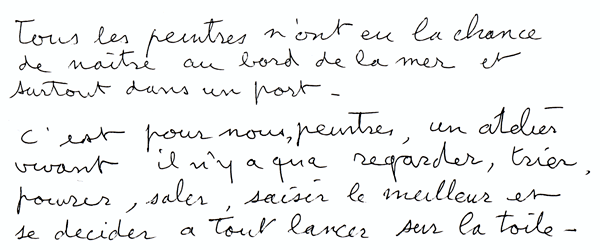 Tous les peintres n'ont eu la chance
de naître au bord de la mer et
surtout dans un port -
C'est pour nous, peintres, un atelier
vivant il n'y a qua regarder, trier,
saler, saisir le meilleur et
se decider a tout lancer sur la toile -